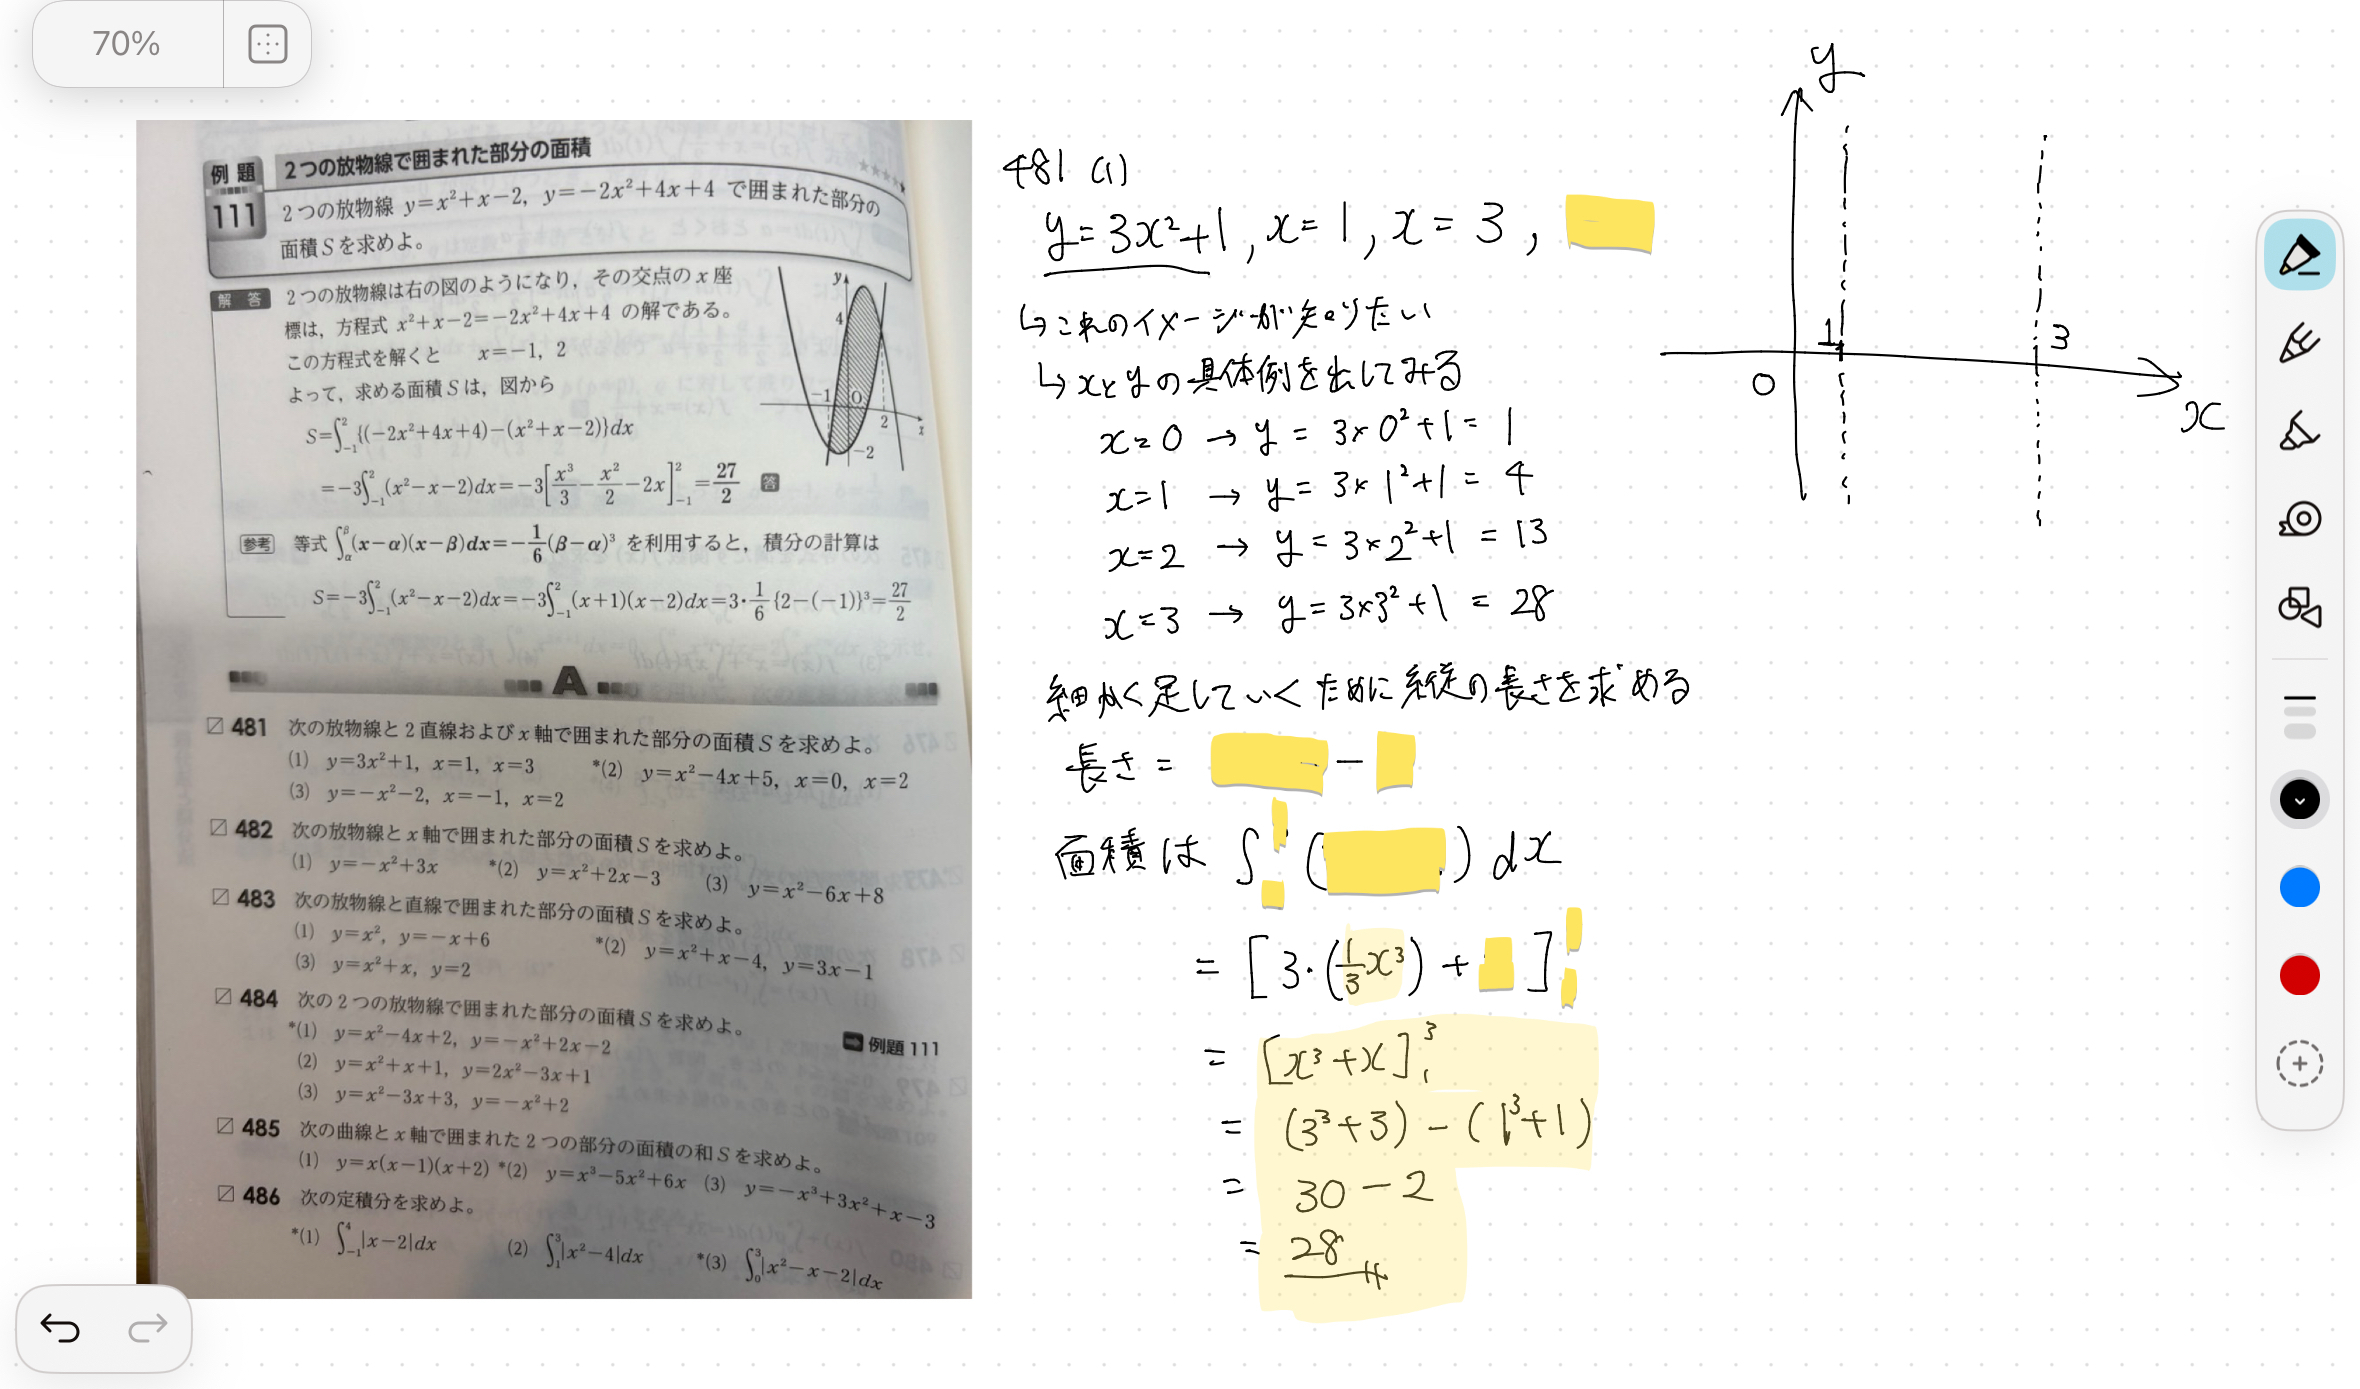 70%
例題 111 2つの放物線で囲まれた部分の面積
2つの放物線 y=x²+x−2, y=−2x²+4x+4 で囲まれた部分の
面積Sを求めよ。
解答 2つの放物線は右の図のようになり，その交点のx座
標は，方程式 x²+x−2=−2x²+4x+4 の解である。
この方程式を解くと x=−1, 2
よって，求める面積Sは，図から
S=∫_{-1}^{2}{(−2x²+4x+4)−(x²+x−2)}dx
=−3∫_{-1}^{2}(x²−x−2)dx=−3[x³/3−x²/2−2x]_{-1}^{2}=27/2 答
y
4
−1
O
2
x
−2
参考 等式 ∫_{α}^{β}(x−α)(x−β)dx=−1/6(β−α)³ を利用すると，積分の計算は
S=−3∫_{-1}^{2}(x²−x−2)dx=−3∫_{-1}^{2}(x+1)(x−2)dx=3・1/6{2−(−1)}³=27/2
A
481 次の放物線と2直線およびx軸で囲まれた部分の面積Sを求めよ。
(1) y=3x²+1, x=1, x=3 *(2) y=x²−4x+5, x=0, x=2
(3) y=−x²−2, x=−1, x=2
482 次の放物線とx軸で囲まれた部分の面積Sを求めよ。
(1) y=−x²+3x *(2) y=x²+2x−3 (3) y=x²−6x+8
483 次の放物線と直線で囲まれた部分の面積Sを求めよ。
(1) y=x², y=−x+6 *(2) y=x²+x−4, y=3x−1
(3) y=x²+x, y=2
484 次の2つの放物線で囲まれた部分の面積Sを求めよ。
*(1) y=x²−4x+2, y=−x²+2x−2 ➡例題111
(2) y=x²+x+1, y=2x²−3x+1
(3) y=x²−3x+3, y=−x²+2
485 次の曲線とx軸で囲まれた2つの部分の面積の和Sを求めよ。
(1) y=x(x−1)(x+2) *(2) y=x³−5x²+6x (3) y=−x³+3x²+x−3
486 次の定積分を求めよ。
*(1) ∫_{-1}^{4}|x−2|dx (2) ∫_{1}^{3}|x²−4|dx *(3) ∫_{0}^{3}|x²−x−2|dx
481 (1)
y=3x²+1, x=1, x=3,
↳これのイメージが知りたい
↳xとyの具体例を出してみる
x=0 → y = 3×0²+1 = 1
x=1 → y = 3×1²+1 = 4
x=2 → y = 3×2²+1 = 13
x=3 → y = 3×3²+1 = 28
細かく足していくために縦の長さを求める
長さ = −
面積は ∫ ( ) dx
= [3・(1/3 x³) + ]
= [x³+x]_{1}^{3}
= (3³+3) − (1³+1)
= 30 − 2
= 28
y
1
3
0
x